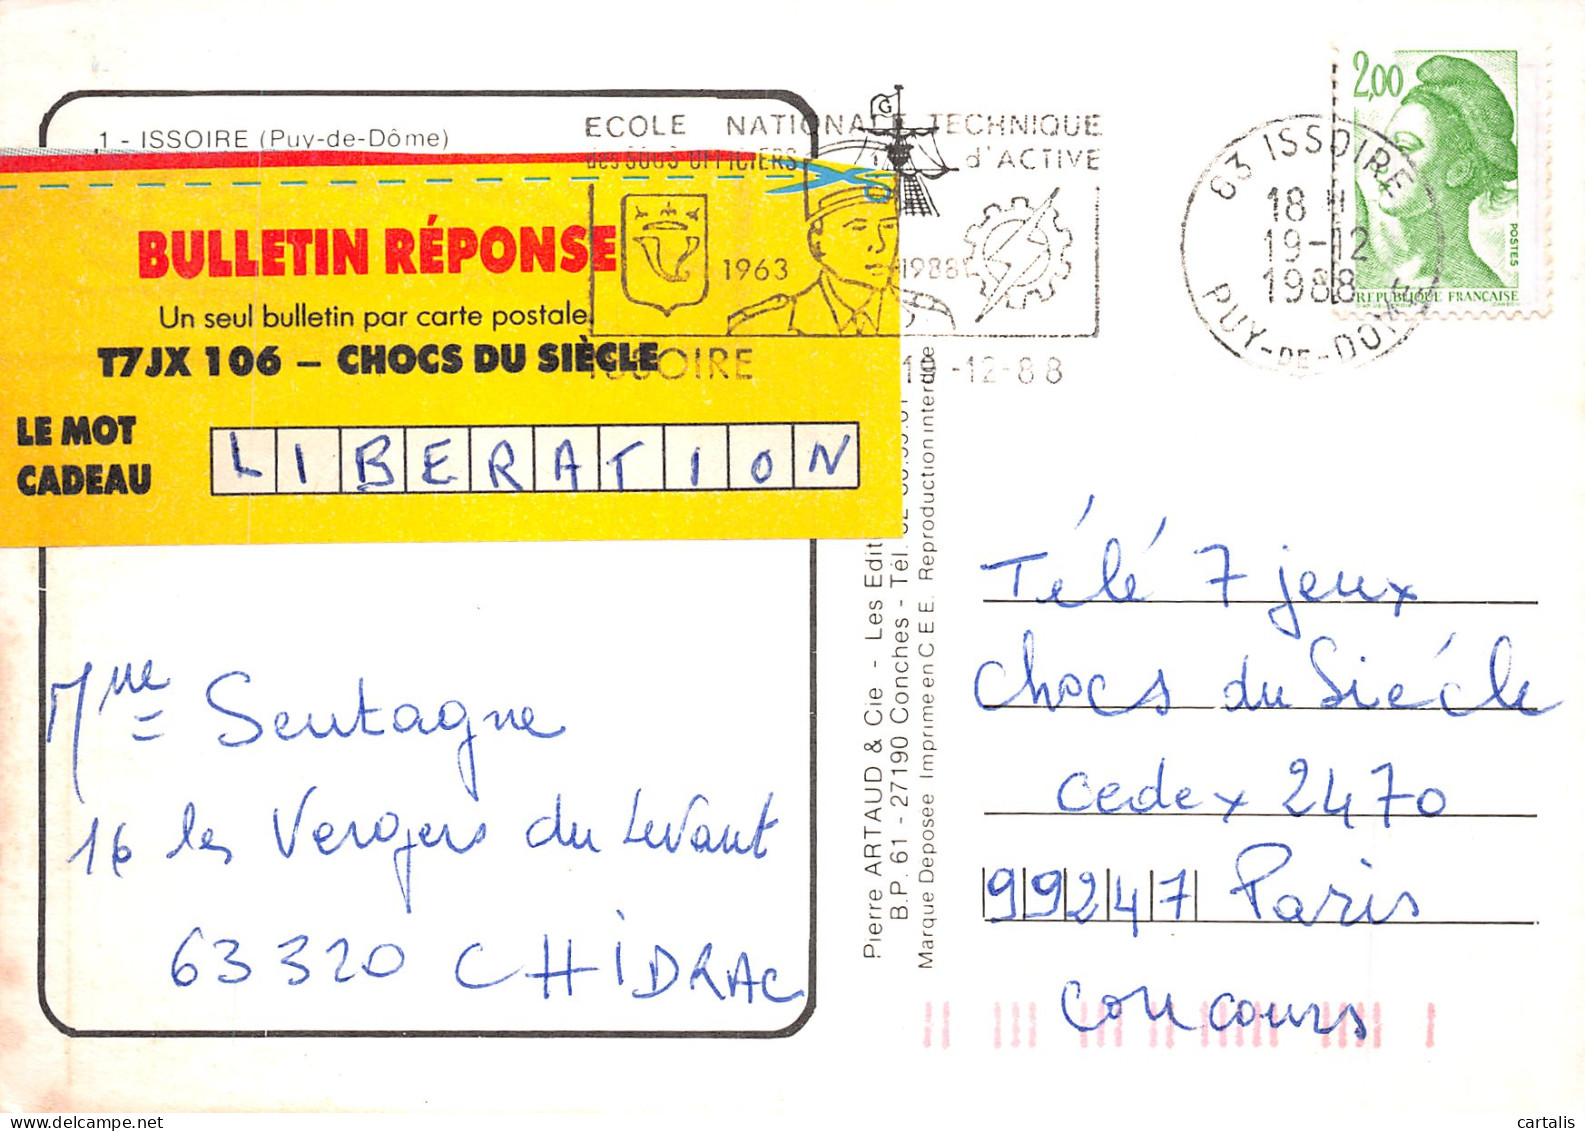 1 - ISSOIRE (Puy-de-Dôme)
BULLETIN RÉPONSE
Un seul bulletin par carte postale
T7JX 106 – CHOCS DU SIÈCLE
LE MOT
CADEAU
LIBERATION
ECOLE NATIONALE TECHNIQUE
des SOUS OFFICIERS d'ACTIVE
G
1963
1988
ISSOIRE
-12-88
63 ISSOIRE
18 H
19-12
1988
PUY-DE-DOME
2,00
POSTES
REPUBLIQUE FRANÇAISE
Mme Sentagne
16 les Vergers du Levant
63320 CHIDRAC
Pierre ARTAUD & Cie - Les Edit
B.P. 61 - 27190 Conches - Tél.
Marque Deposee Imprime en C E E. Reproduction interdite
Télé 7 jeux
Chocs du Siécle
cedex 2470
99247 Paris
concours
cartalis